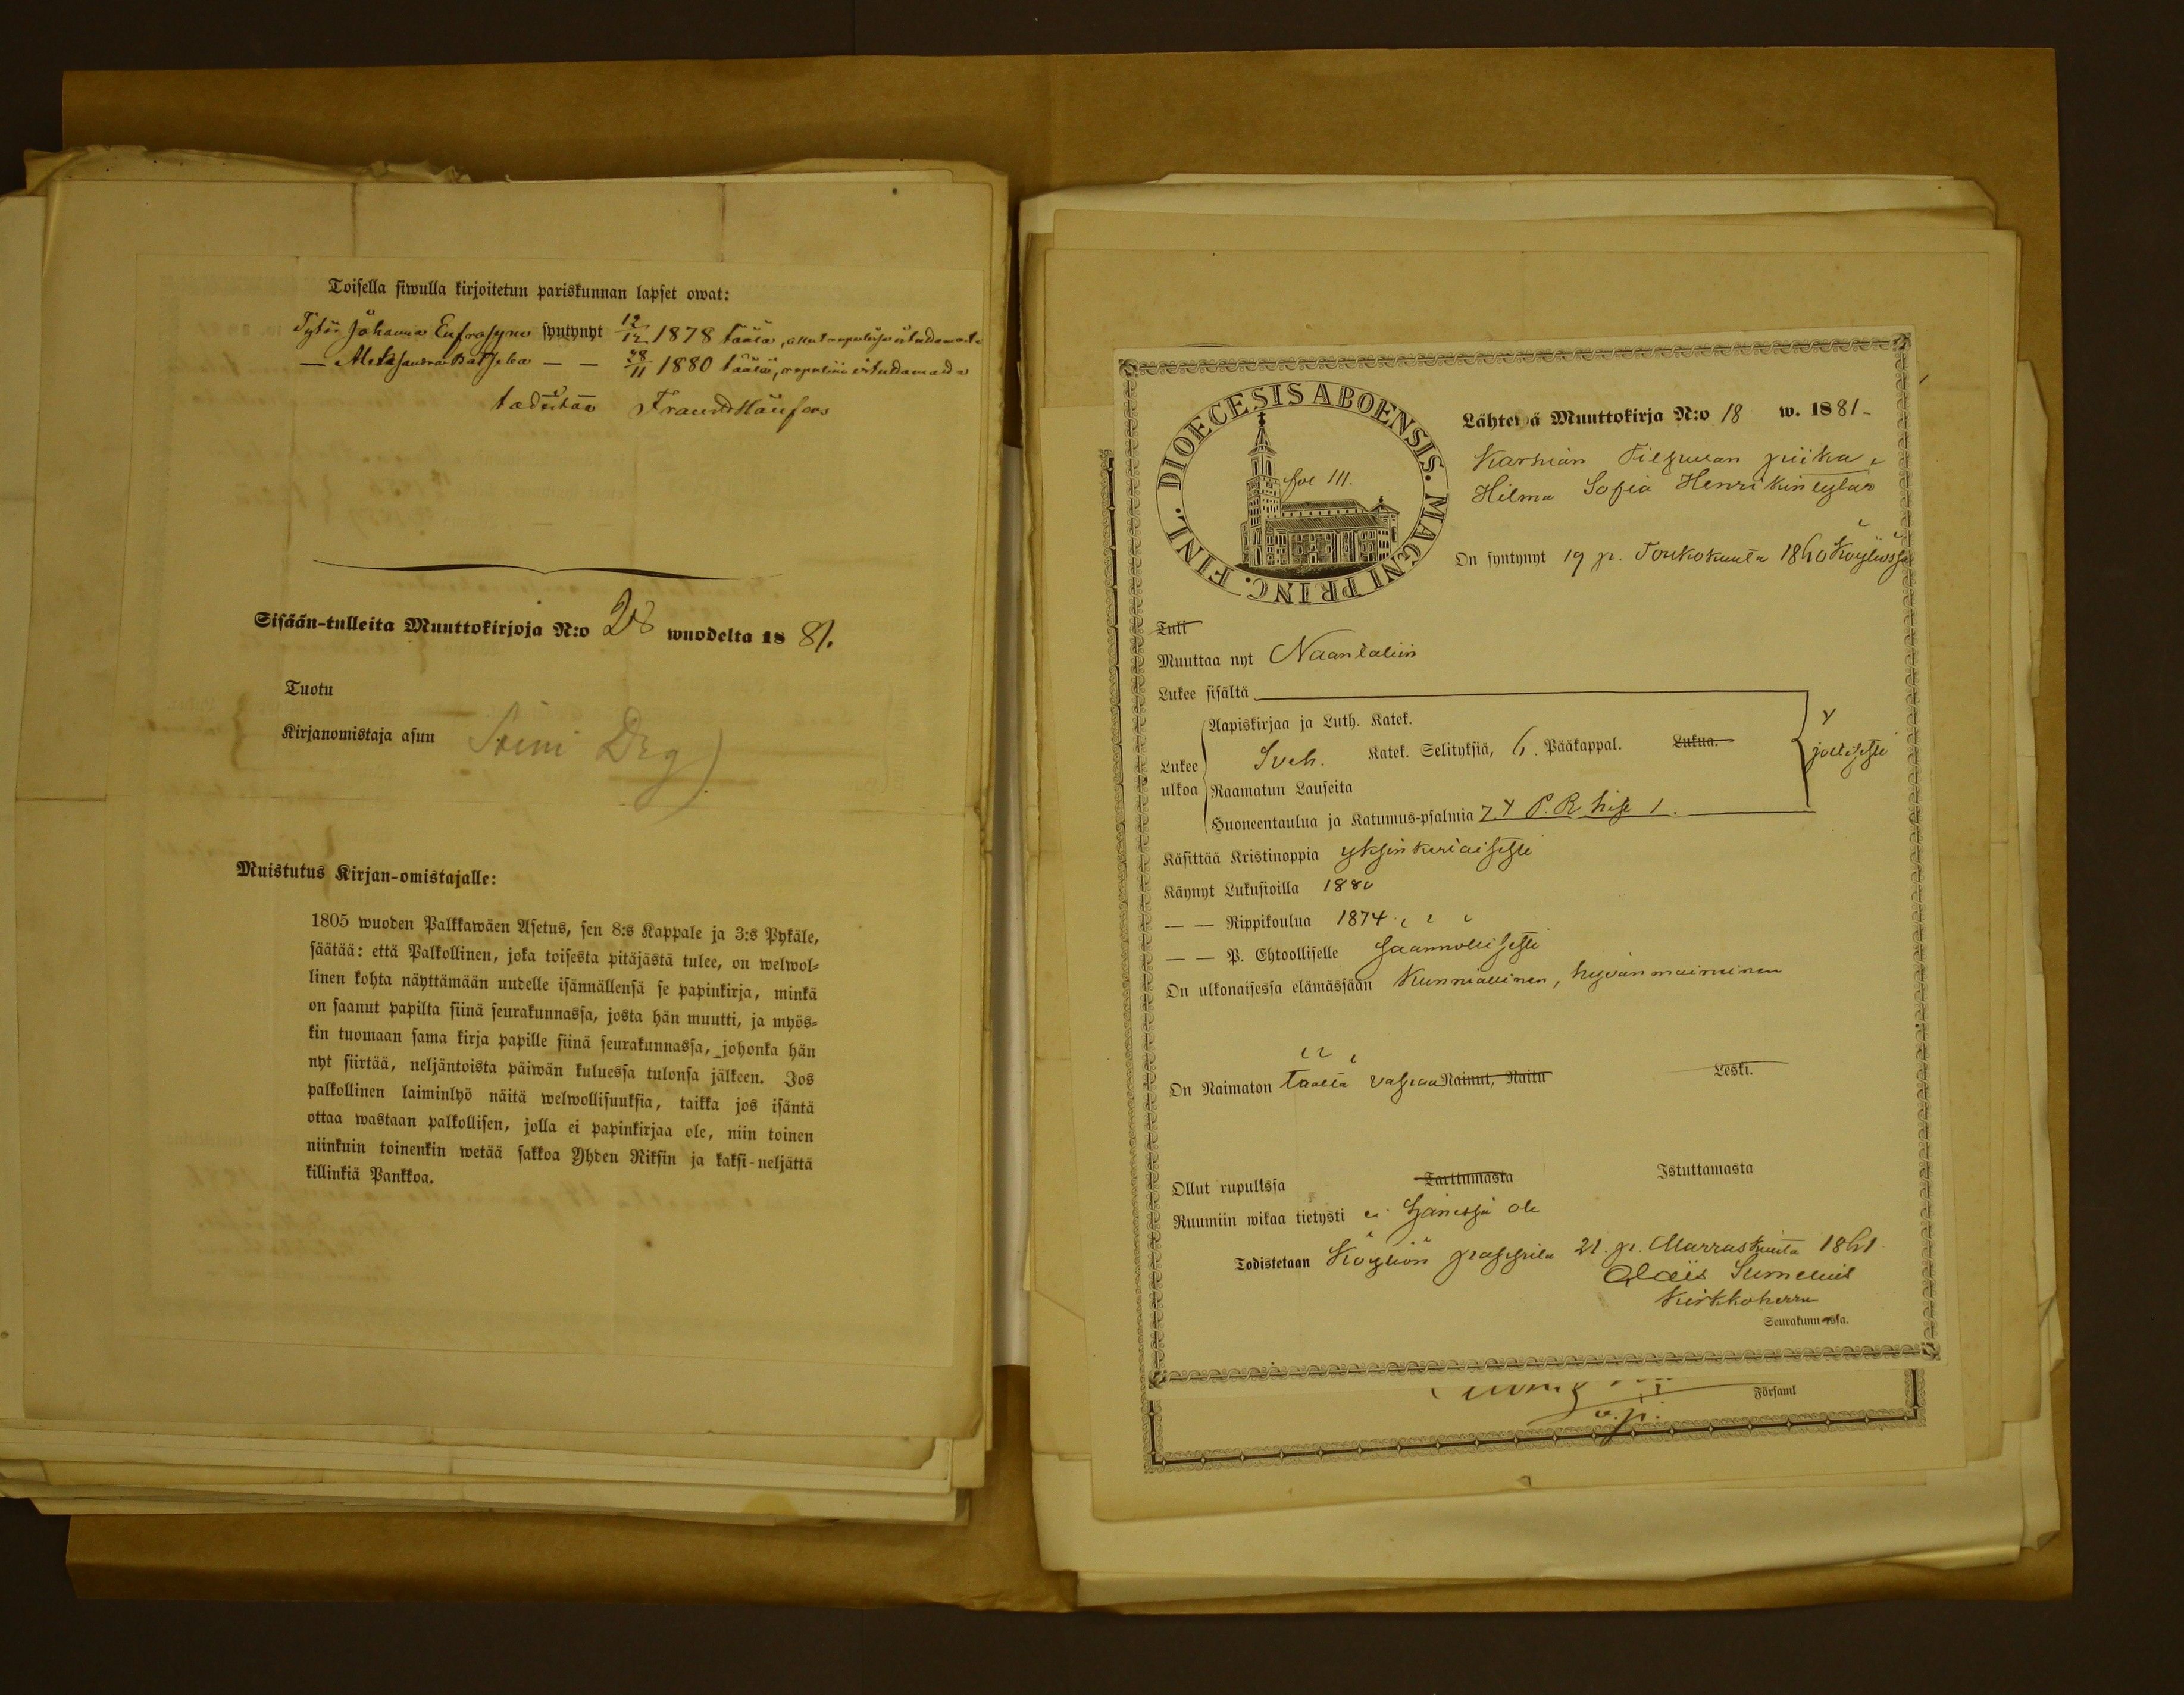 Toisella siwulla kirjoitetun pariskunnan lapset owat:
Tytär Johanna Eufrosyne syntynyt 12/12 1878 täälä, ollut rupulissa istudamata
— Aleksandra Batseba — — 28/11 1880 täälä, rupuliin istudamada
todistaa Frans
Sisään-tulleita Muuttokirjoja N:o 28 wuodelta 1881.
Tuotu
Kirjanomistaja asuu Soini Drg)
Muistutus Kirjan-omistajalle:
1805 wuoden Palkkawäen Asetus, sen 8:s Kappale ja 3:s Pykäle,
säätää: että Palkollinen, joka toisesta pitäjästä tulee, on welwol=
linen kohta näyttämään uudelle isännällensä se papinkirja, minkä
on saanut papilta siinä seurakunnassa, josta hän muutti, ja myös=
kin tuomaan sama kirja papille siinä seurakunnassa, johonka hän
nyt siirtää, neljäntoista päiwän kuluessa tulonsa jälkeen. Jos
palkollinen laiminlyö näitä welwollisuuksia, taikka jos isäntä
ottaa wastaan palkollisen, jolla ei papinkirjaa ole, niin toinen
niinkuin toinenkin wetää sakkoa Yhden Riksin ja kaksi-neljättä
killinkiä Pankkoa.
DIOECESIS ABOENSIS. MAGNI PRINC. FINL.
fol 111.
Lähtewä Muuttokirja N:o 18 w. 1881-
Karhian piika
Hilma Sofia Henrikintytär
On syntynyt 19 p. Toukokuuta 1860 Köyliössä
Tull
Muuttaa nyt Naantaliin
Lukee sisältä
Aapiskirjaa ja Luth. Katek.
Lukee ulkoa
Sveb. Katek. Selityksiä, 6. Pääkappal. Lukua.
jollisesti
Raamatun Lauseita
Huoneentaulua ja Katumus-psalmia 7. 4 P. R. 1.
Käsittää Kristinoppia yksinkertaisesti
Käynyt Lukusioilla 1880
— — Rippikoulua 1874
— — P. Ehtoolliselle säännöllisesti
On ulkonaisessa elämässään kunniallinen, hyvänmaininen
On Naimaton täältä vapaa Nainut, Naitu Leski.
Ollut rupulissa Tarttumasta Istuttamasta
Ruumiin wikaa tietysti ei hänessä ole
Todistetaan Köyliön pappila 21. p. Marraskuuta 1881
Alois Sumelius
Kirkkoherra
Seurakunnassa.
Församl
v.p.